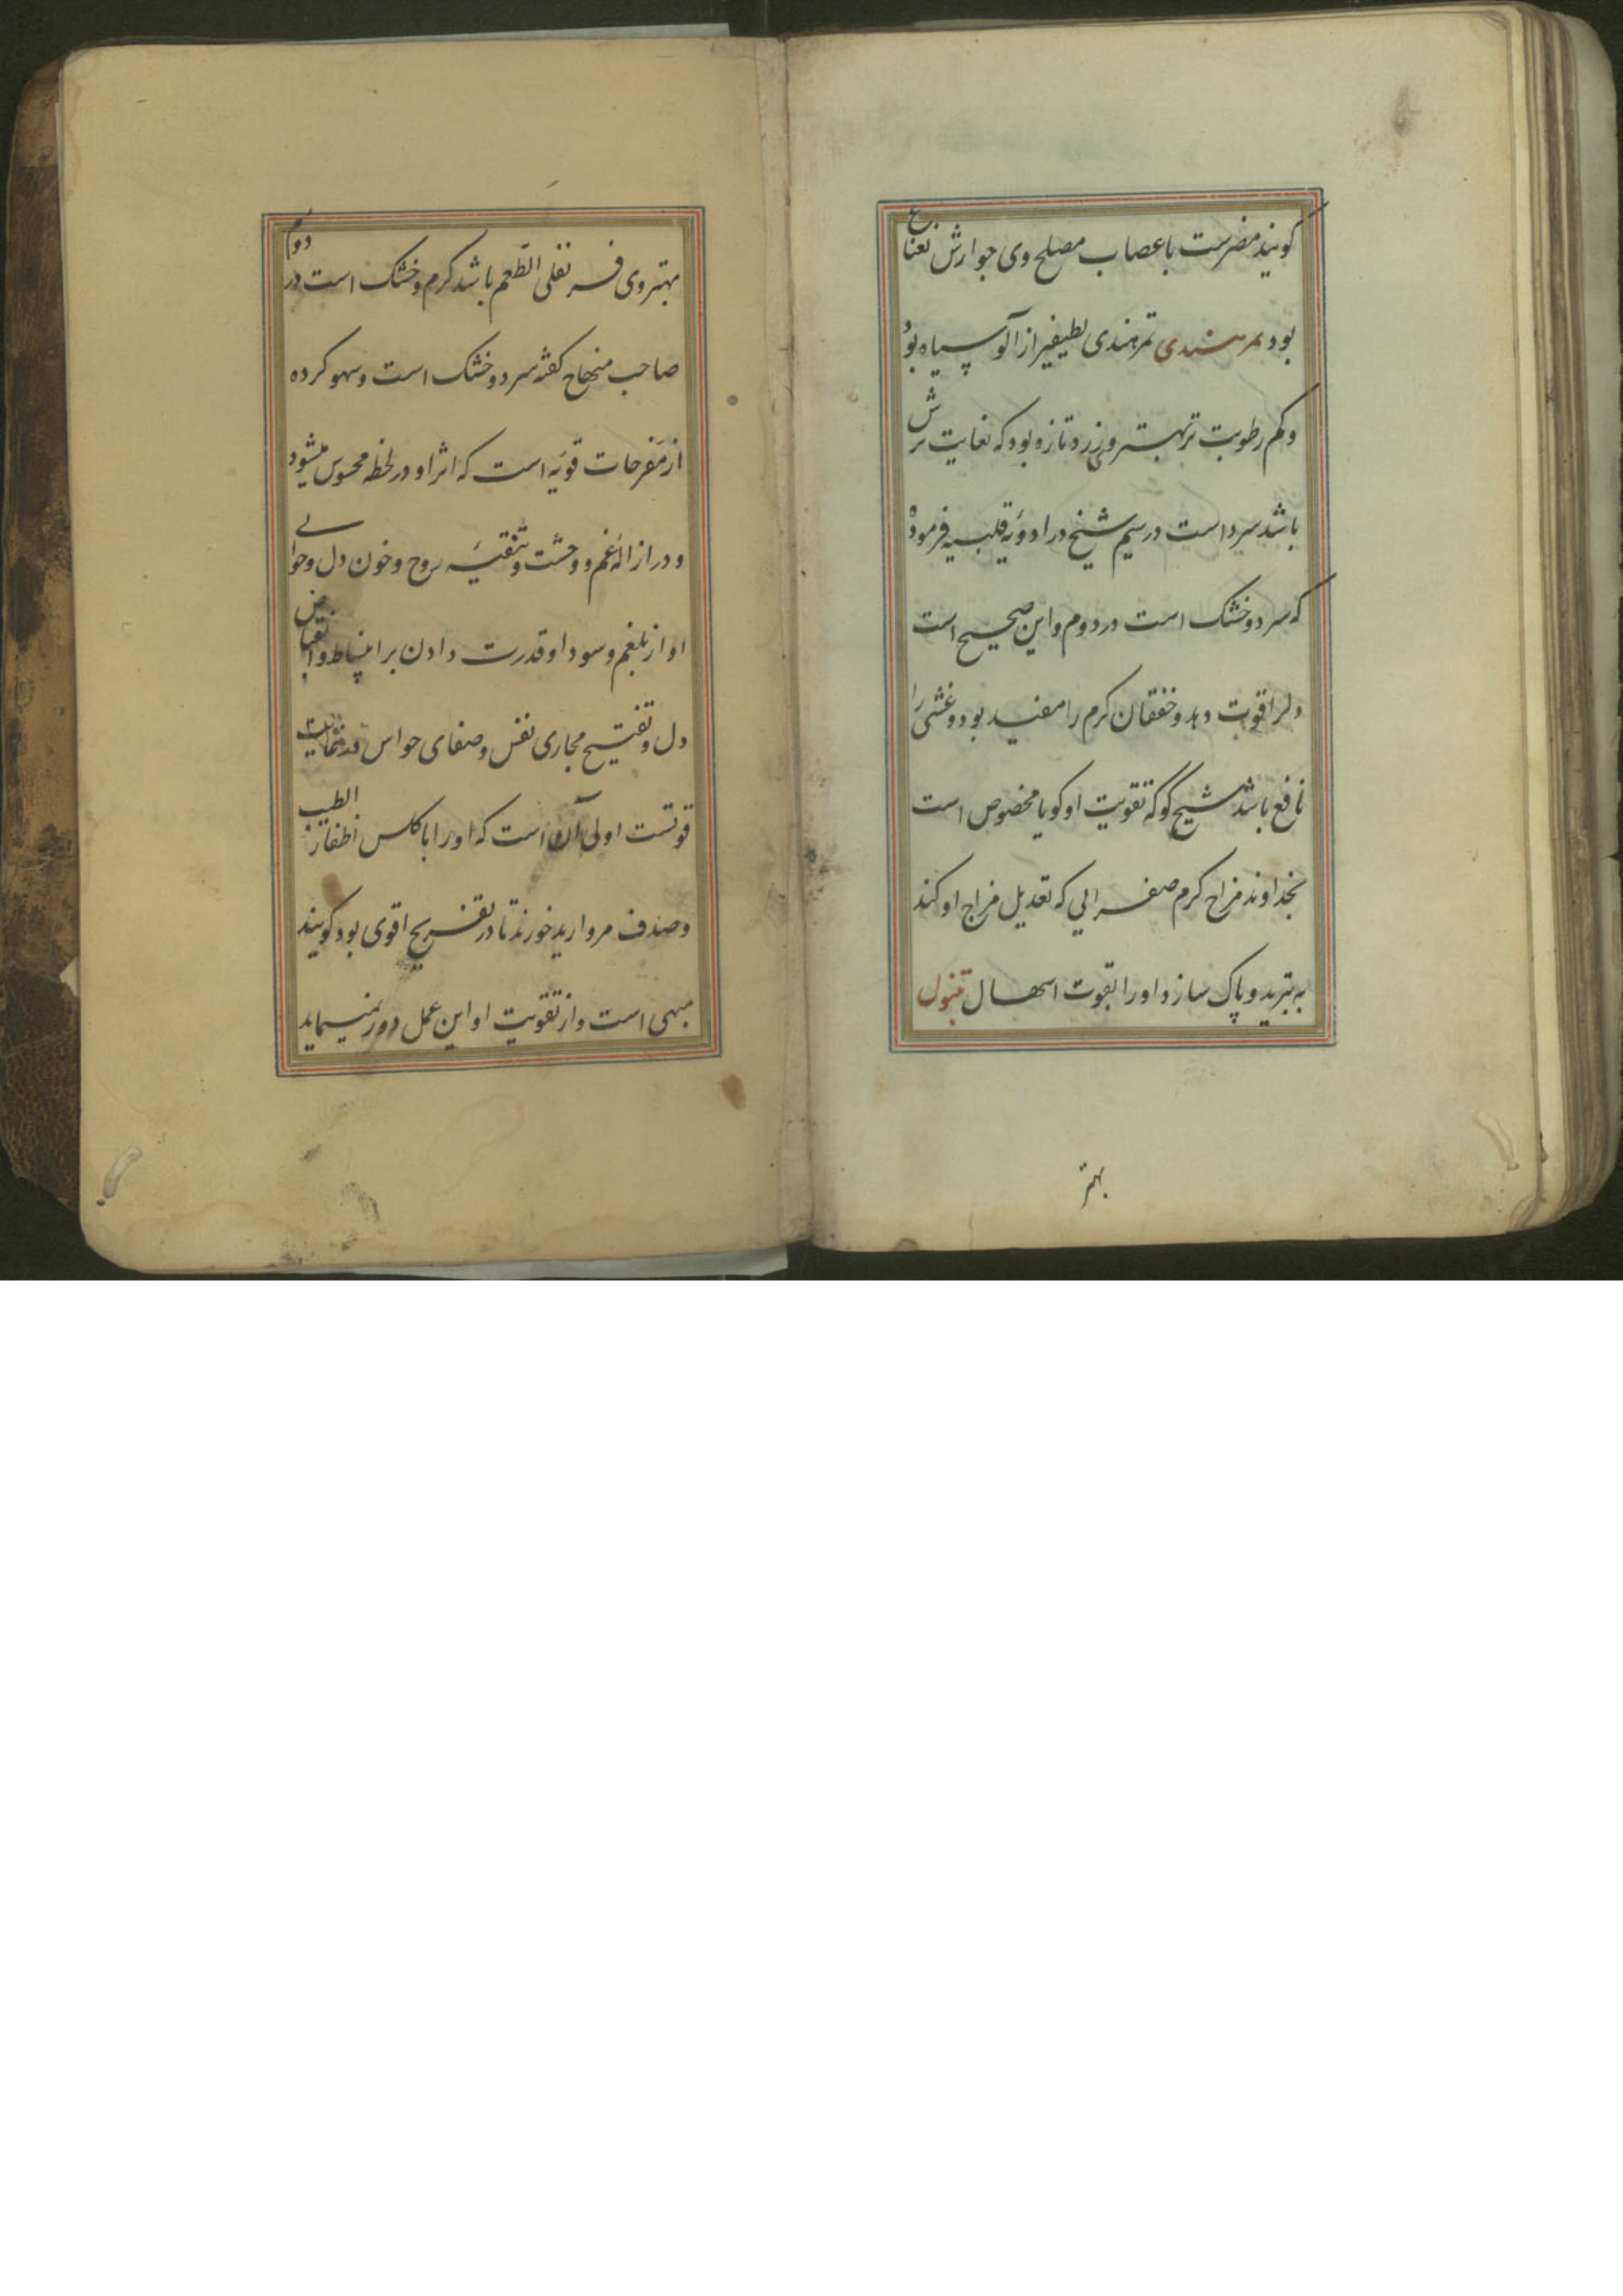 کویند مضرست باعصاب مصلح وی جوارش نعناع
بود تمر هندی تمر هندی لطیفتر از آلو سیاه بود
وکم رطوبت تر بهترین وی زرد تازه بود که بغایت ترش
باشد سرد است در سیم شیخ در ادویه قلبیه فرموده
که سرد و خشک است در دوم و این صحیح است
دلرا قوت دهد و خفقان کرم را مفید بود و غشی را
نافع باشد شیخ کو که تقویت او کویا مخصوص است
بخداوند مزاج کرم صفرایی که تعدیل مزاج او کند
به تبرید و پاک سازد اورا بقوت اسهال تنبول
بهتر
بهتر وی قرنفلی الطعم باشد کرم و خشک است در دوم
صاحب منهاج کفته سرد و خشک است و سهو کرده
از مفرحات قویه است که اثر او در لحظه محسوس میشود
و در ازاله غم و وحشت و تنقیه روح و خون دل و حوالی
او از بلغم و سودا و قدرت دادن بر انبساط و انقباض
دل و تفتیح مجاری نفس و صفای حواس
قوتست اولی آن است که اورا با کلس اظفار الطیب
و صدف مروارید خورند تا در تفریح اقوی بود کویند
مبهی است و از تقویت او این عمل دور نمینماید